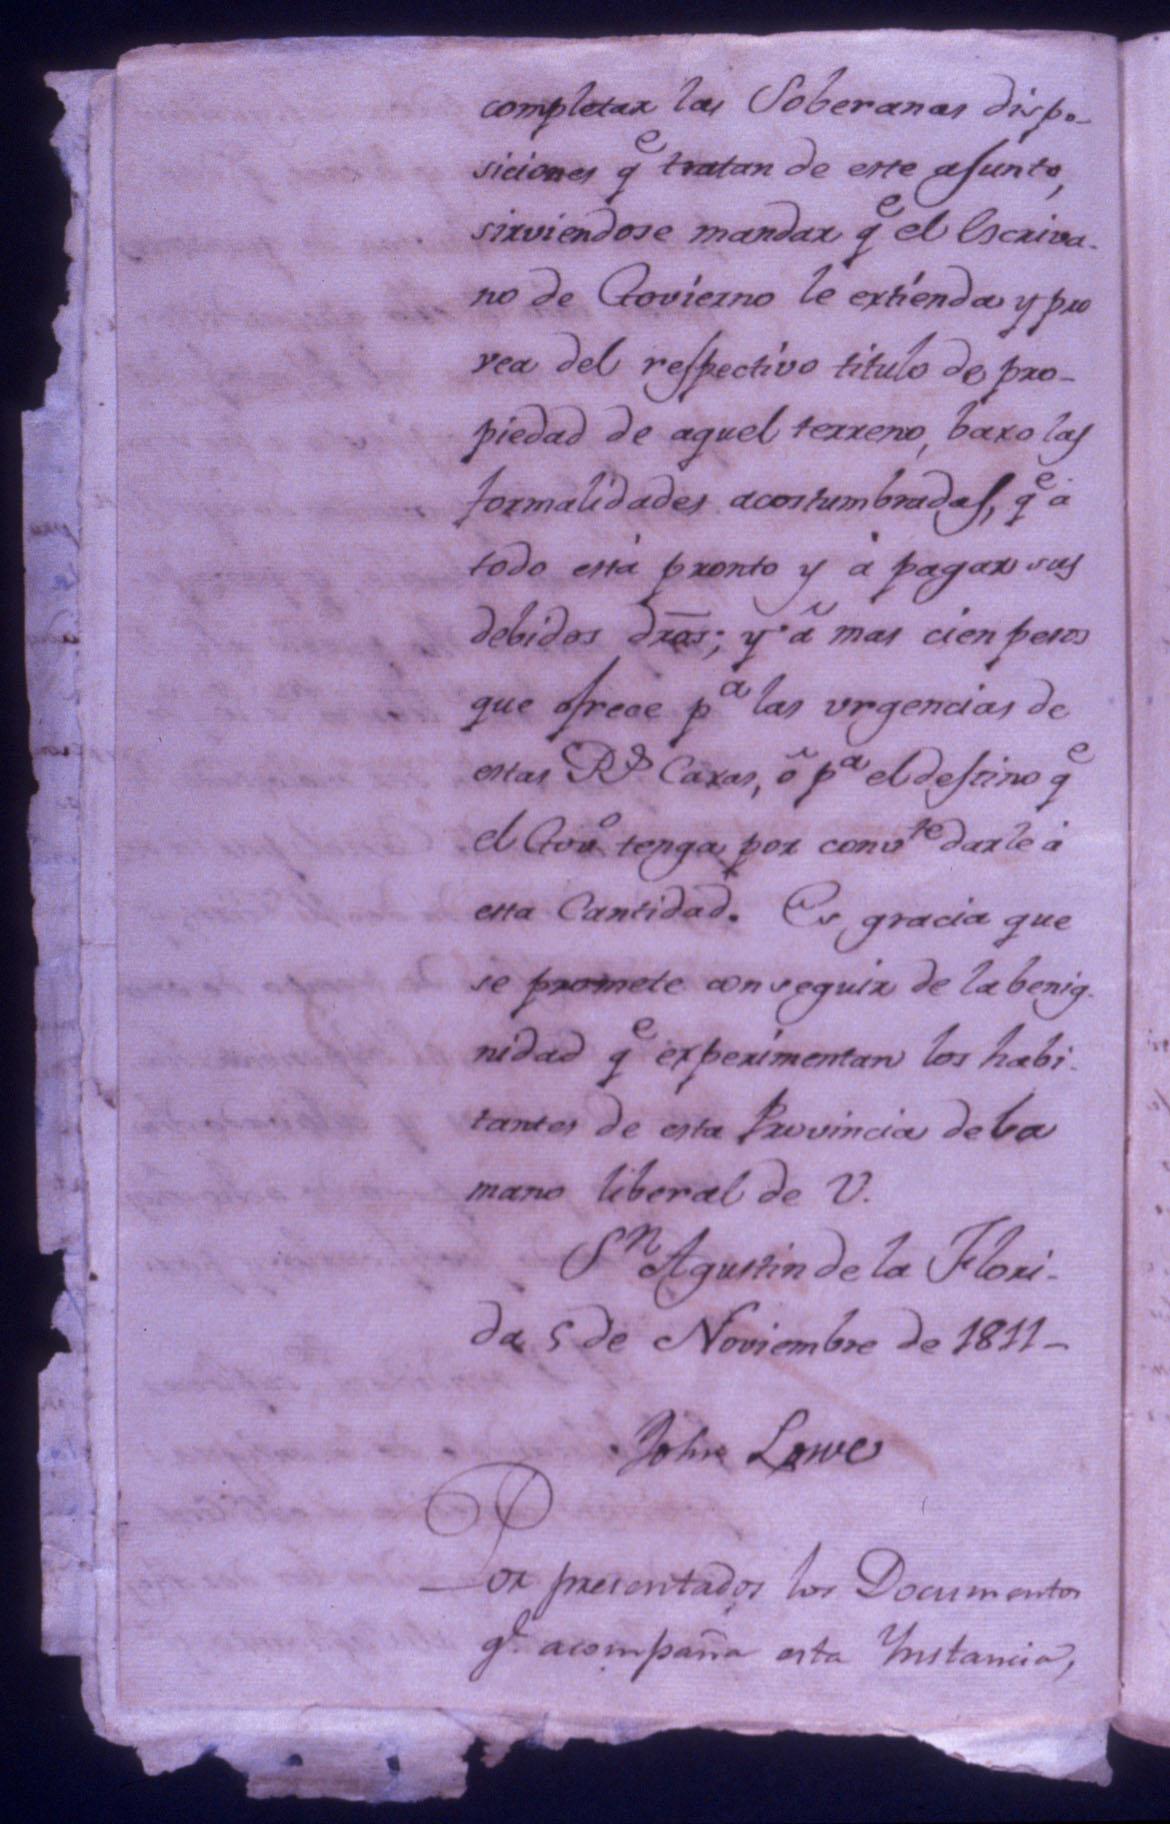 completar las Soberanas dispo-
siciones qe tratan de este asunto,
sirviendose mandar qe el Escriva-
no de Govierno le extienda y pro
vea del respectivo titulo de pro-
piedad de aquel terreno, baxo las
formalidades acostumbradas, qe á
todo está pronto y á pagar sus
debidos dros; y á mas cien pesos
que ofrece pa las urgencias de
estas Rs Caxas, ó pa el destino qe
el Govo tenga por convte darle á
esta Cantidad. Es gracia que
se promete conseguir de la benig-
nidad qe experimentan los habi-
tantes de esta Provincia de la
mano liberal de V.
Sn Agustin de la Flori-
da 5 de Noviembre de 1811-
John Lowe
Por presentados los Documentos
qe acompaña esta Ynstancia,